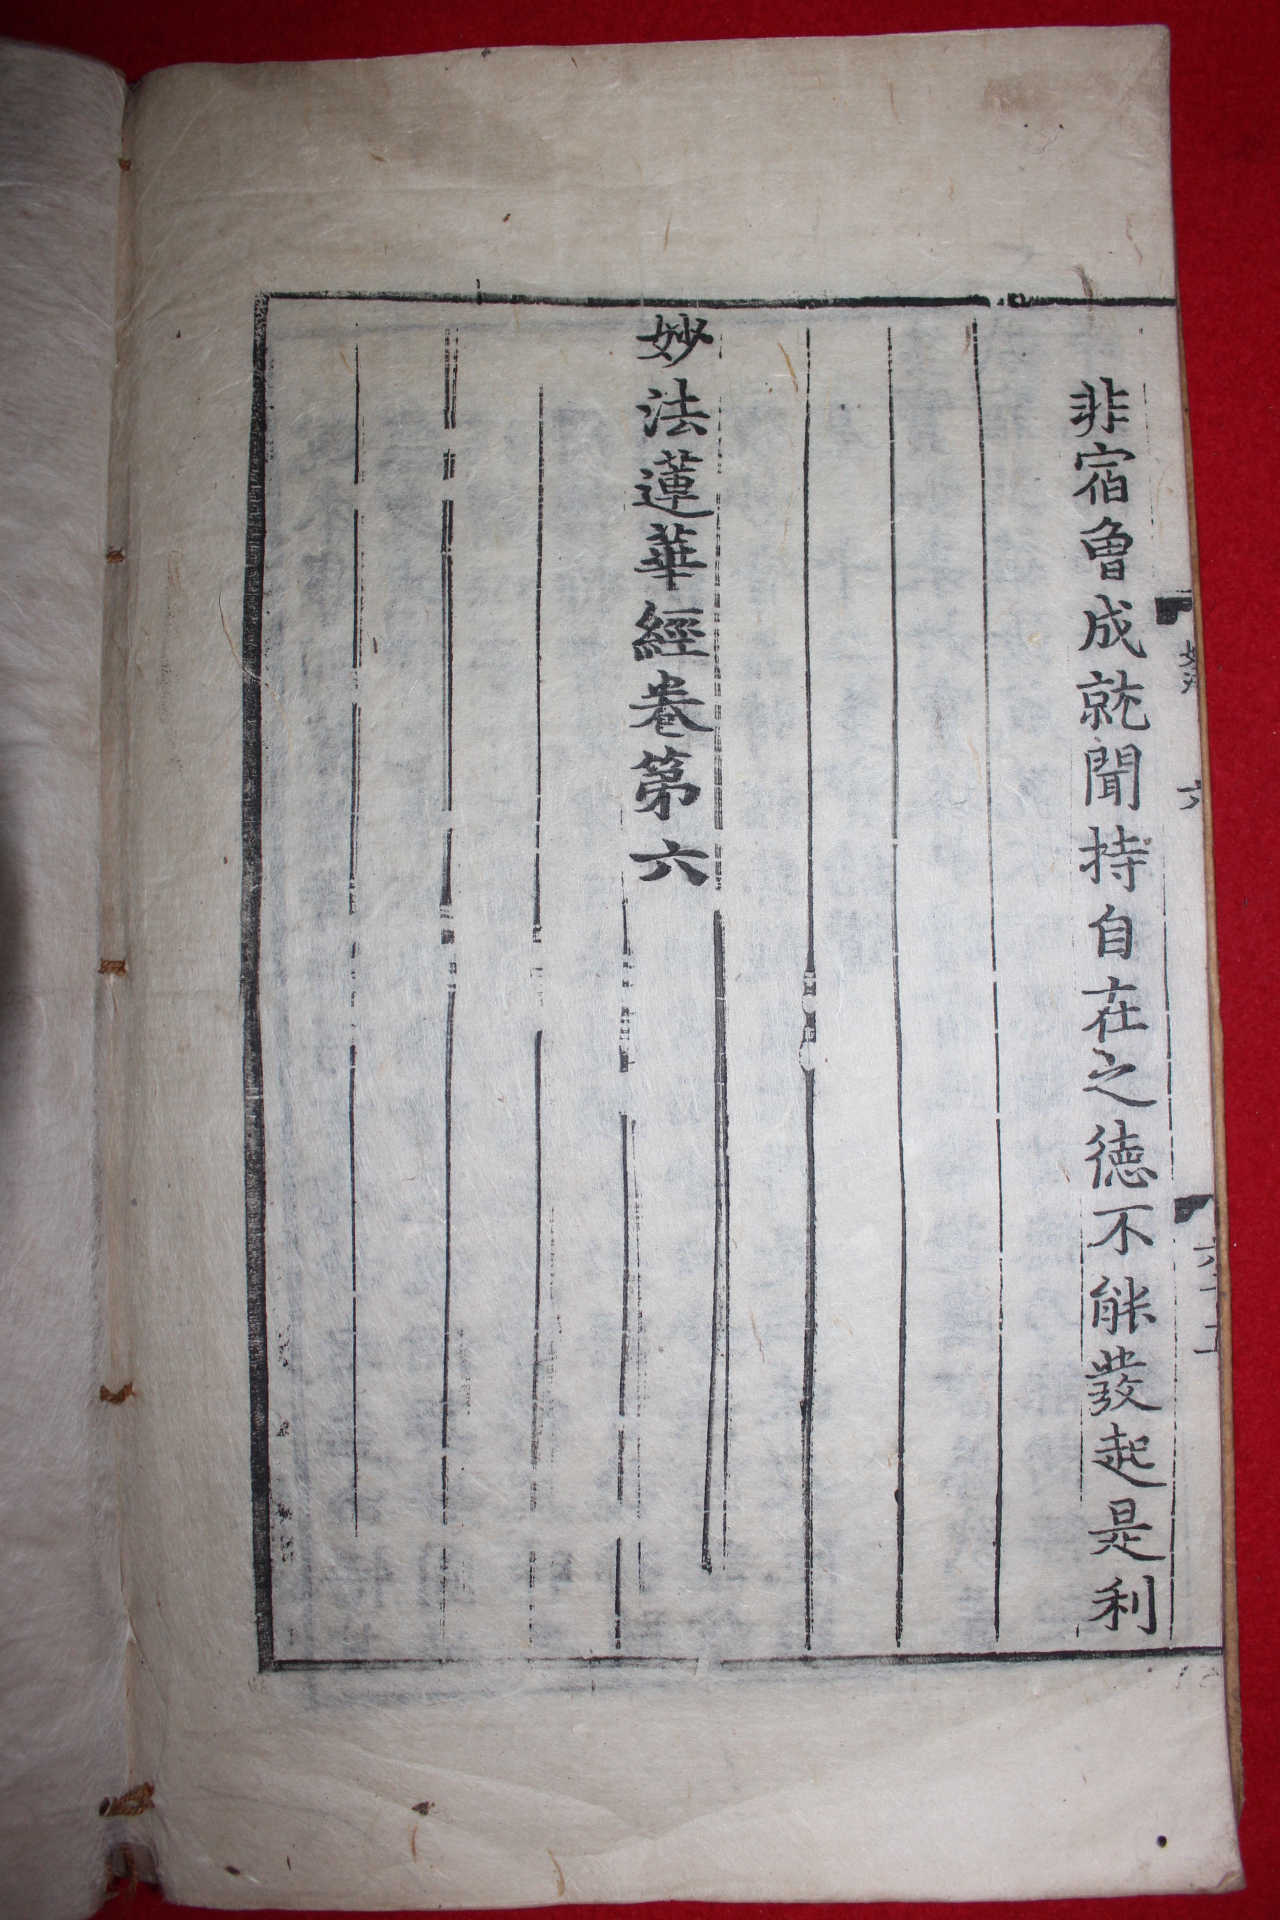 非宿曾成就聞持自在之德不能發起是利
妙法蓮華經卷第六
六